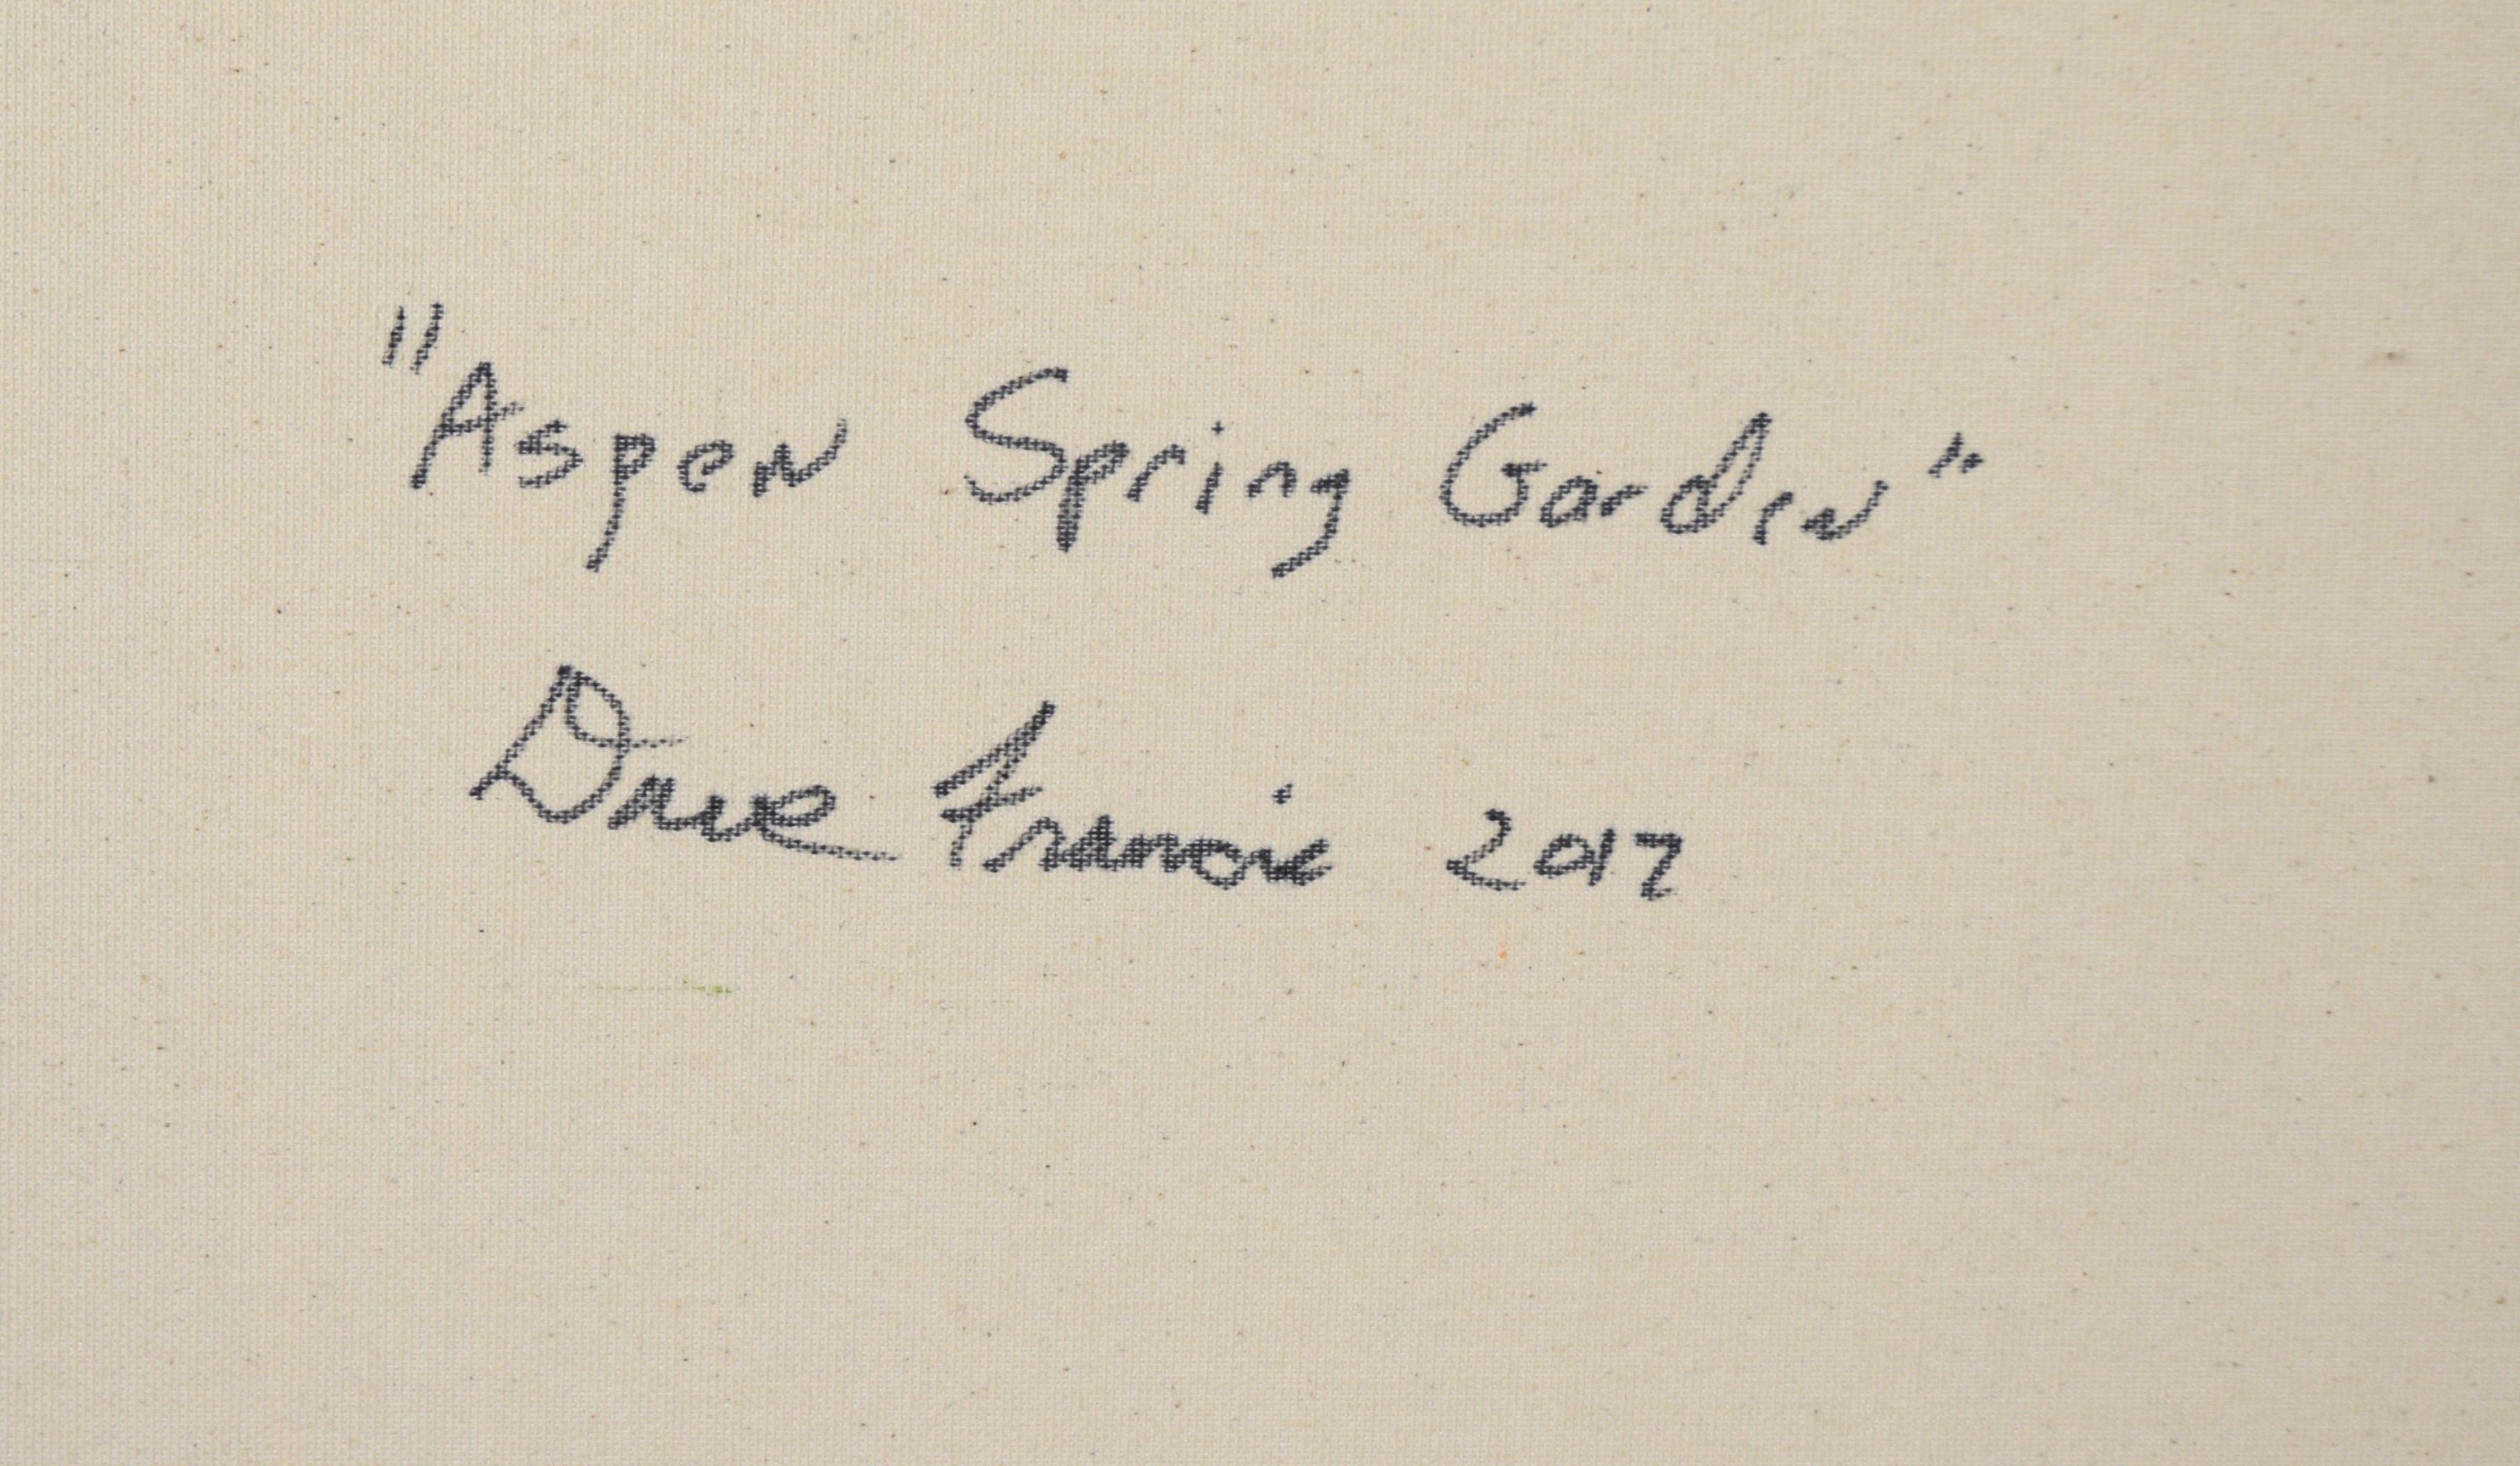 "Aspen Spring Garden"
Dave Francis 2017